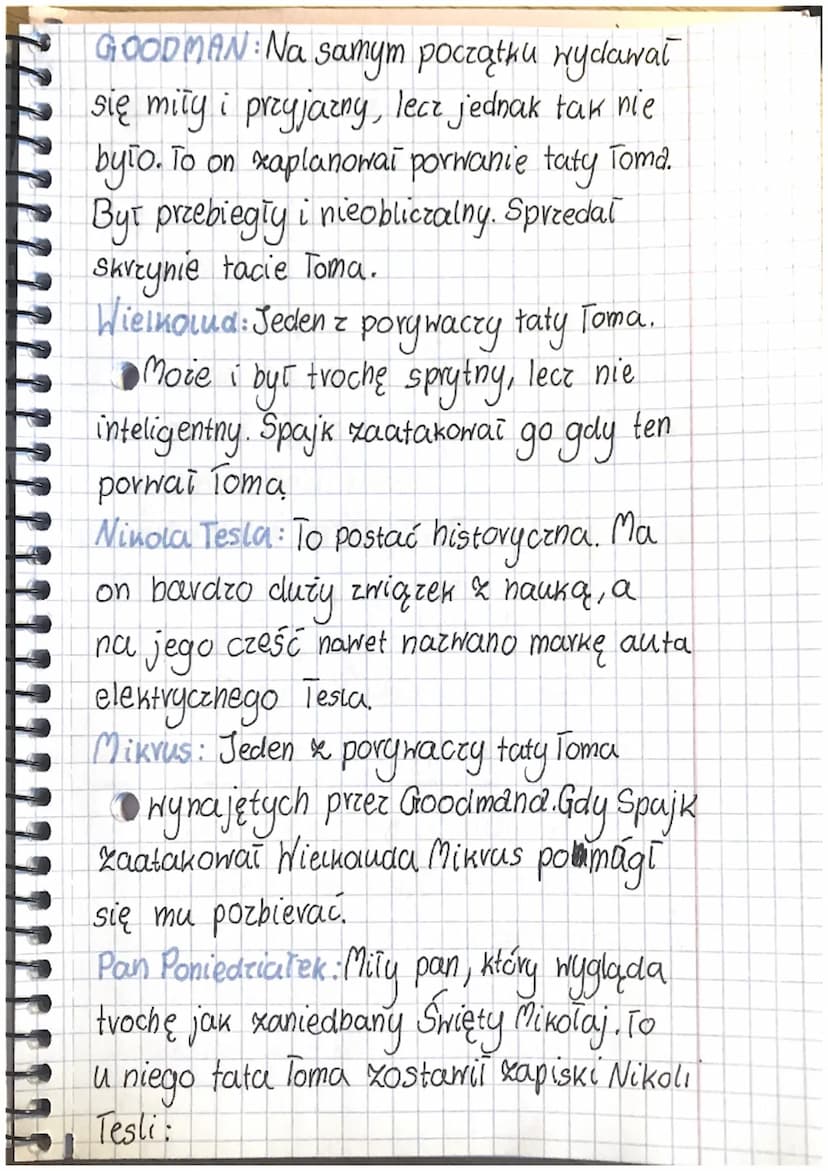 GOODMAN: Na samym początku wydawał
się miły i przyjazny, lecz jednak tak nie
było. To on zaplanował porwanie taty Toma.
Był przebiegły i nieobliczalny. Sprzedał
skrzynie tacie Toma.
Wielkolud: Jeden z porywaczy taty Toma.
Może i był trochę sprytny, lecz nie
inteligentny. Spajk zaatakował go gdy ten
porwał Toma
Nikola Tesla: To postać historyczna. Ma
on bardzo duży związek z nauką, a
na jego cześć nawet nazwano markę auta
elektrycznego Tesla.
Mikrus: Jeden z porywaczy taty Toma
wynajętych przez Goodmana. Gdy Spajk
zaatakował Wielkouda Mikrus pomágł
się mu pozbierać.
Pan Poniedziałek: Miły pan, który wygląda
trochę jak zaniedbany Święty Mikołaj. To
u niego tata Toma zostawił zapiski Nikoli
Tesli: